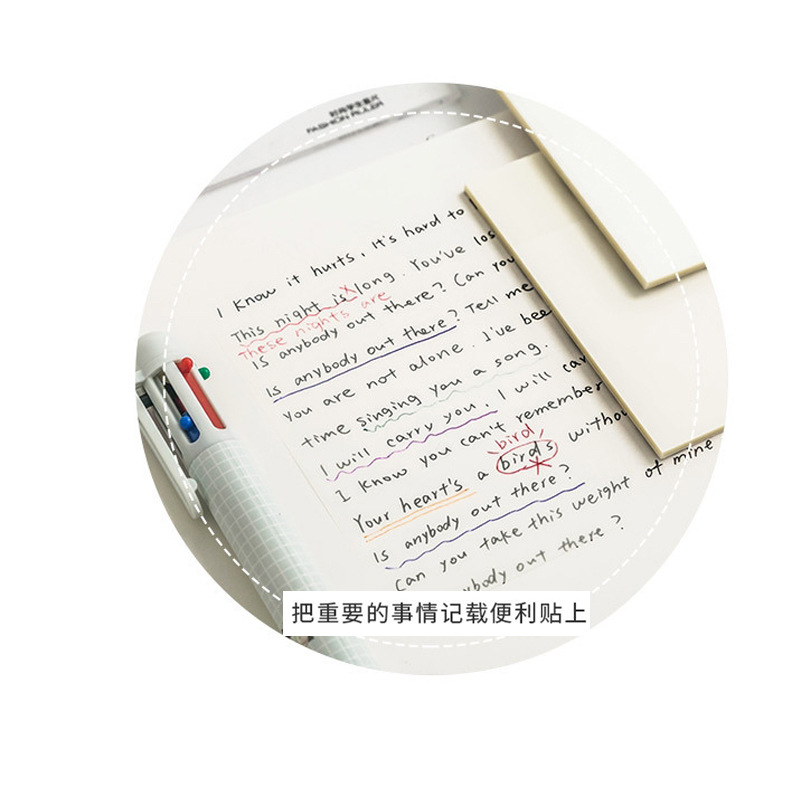 时尚学生套尺
FASHION RULER
I know it hurts, it's hard to
This night is long. You've los
These nights are
Is anybody out there? Can you
Is anybody out there? Tell me
You are not alone. I've bee
time singing you a song.
I will carry you. I will car
I know you can't remember
bird
Your heart's a birds withou
Is anybody out there?
Can you take this weight of mine
ybody out there?
把重要的事情记载便利贴上